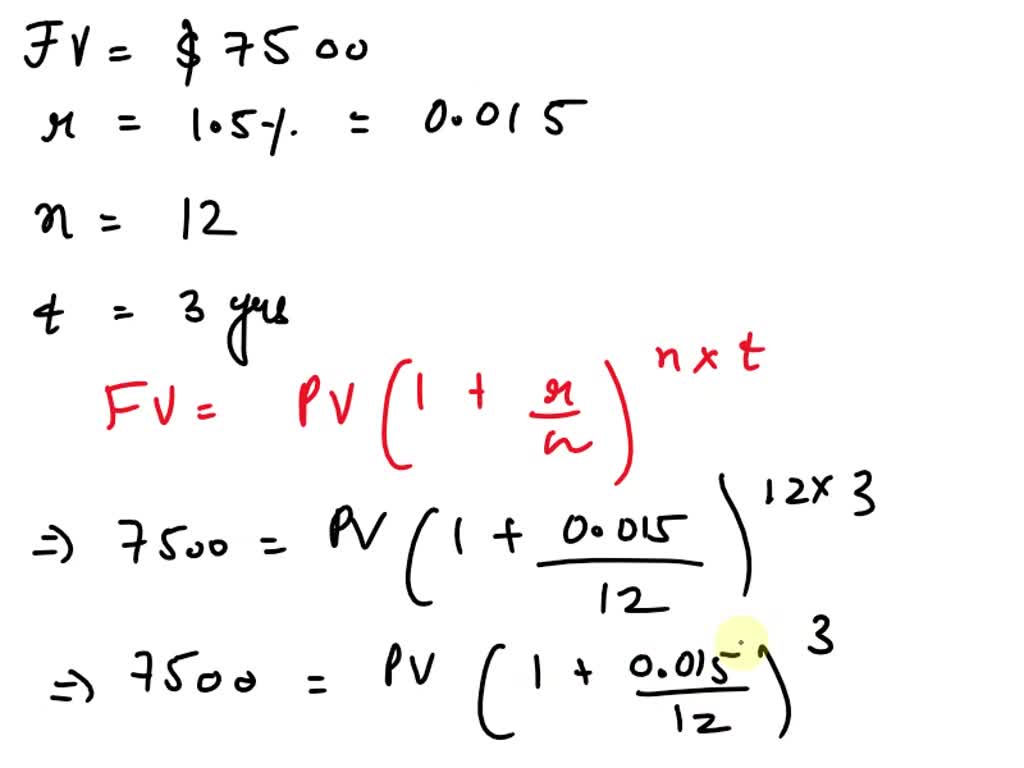 FV = $ 7500
r = 1.5% = 0.015
n = 12
t = 3 yrs
FV = PV (1 + r/n)^n×t
⇒ 7500 = PV (1 + 0.015/12)^12×3
⇒ 7500 = PV (1 + 0.015/12)^3